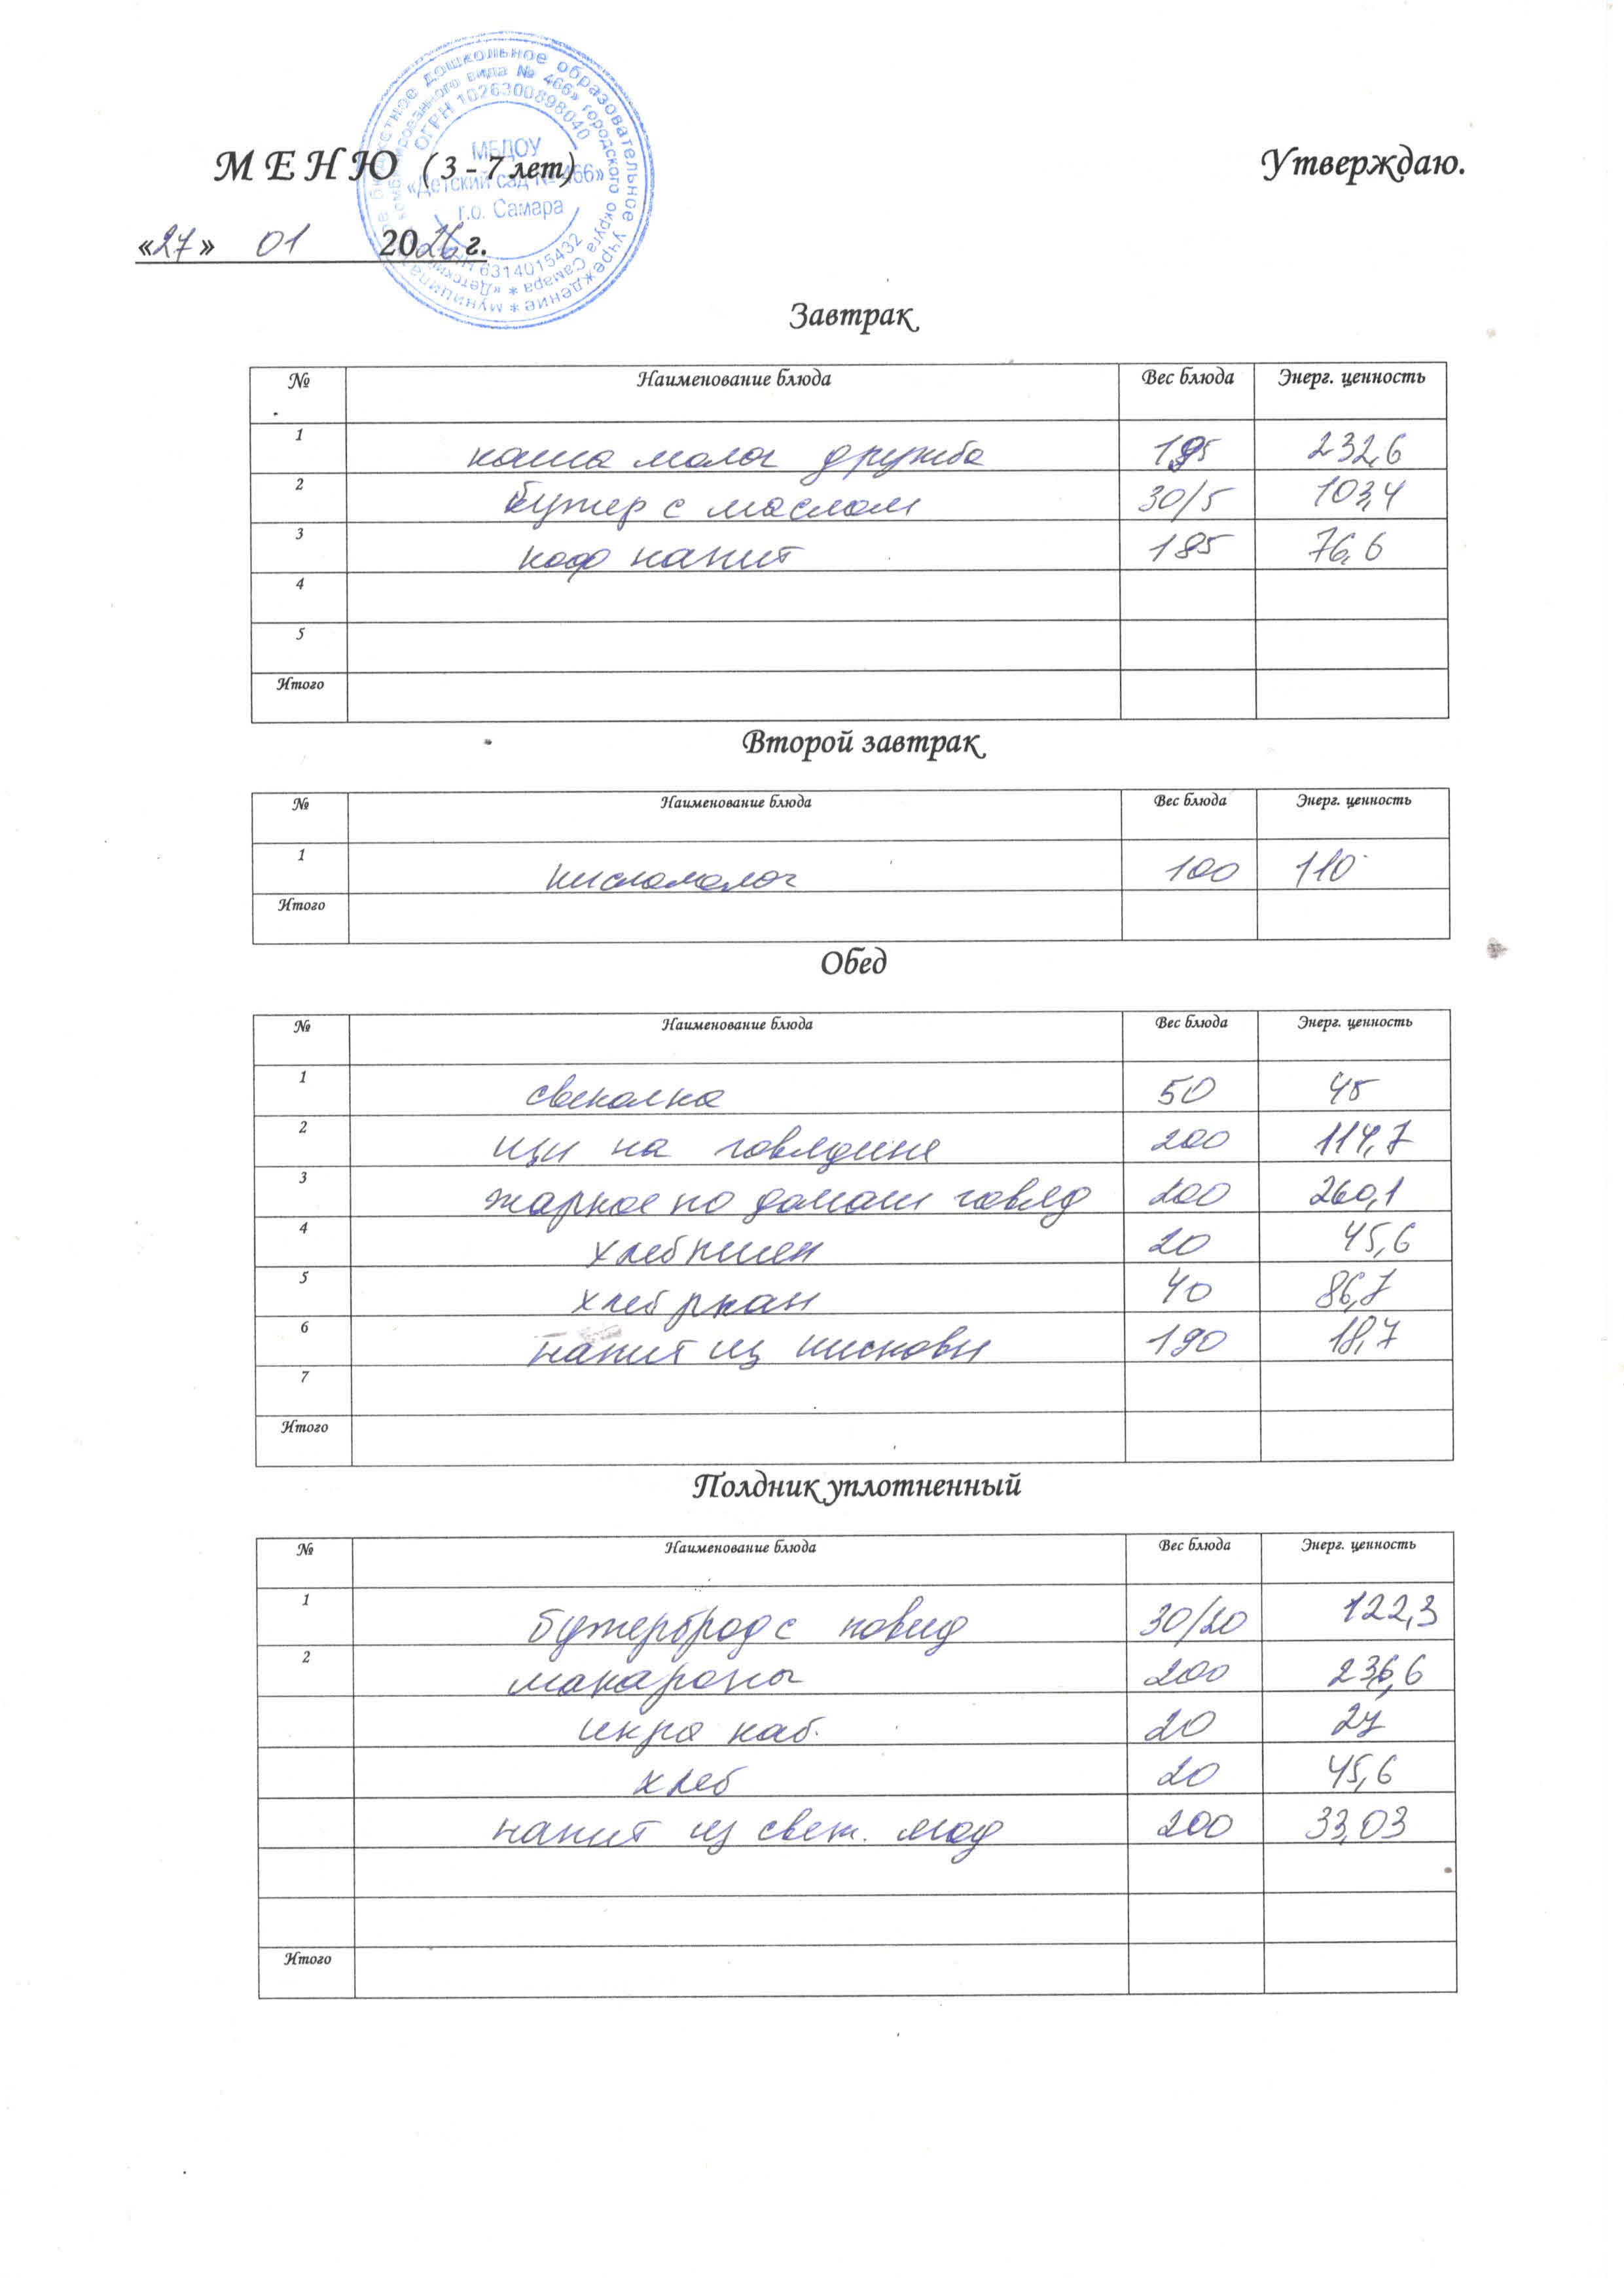 муниципальное бюджетное дошкольное образовательное учреждение * «Детский
комбинированного вида № 466» городского округа Самара *
ОГРН 1026300898040
МБДОУ
«Детский сад № 466»
г.о. Самара
ИНН 6314015432
М Е Н Ю ( 3 - 7 лет)
Утверждаю.
«27» 01 2026 г.
Завтрак
№ Наименование блюда Вес блюда Энерг. ценность
1 каша молоч дружба 195 232,6
2 бутер с маслом 30/5 103,4
3 коф напит 185 76,6
4
5
Итого
Второй завтрак
№ Наименование блюда Вес блюда Энерг. ценность
1 кисломолоч 100 110
Итого
Обед
№ Наименование блюда Вес блюда Энерг. ценность
1 свеколка 50 45
2 щи на говядине 200 114,7
3 жаркое по домаш говяд 200 260,1
4 хлеб пшен 20 45,6
5 хлеб ржан 40 86,7
6 напит из 190 18,7
7
Итого
Полдник уплотненный
№ Наименование блюда Вес блюда Энерг. ценность
1 бутерброд с повид 30/20 122,3
2 макароны 200 236,6
икра каб. 20 27
хлеб 20 45,6
напит из свеж. 200 33,03
Итого